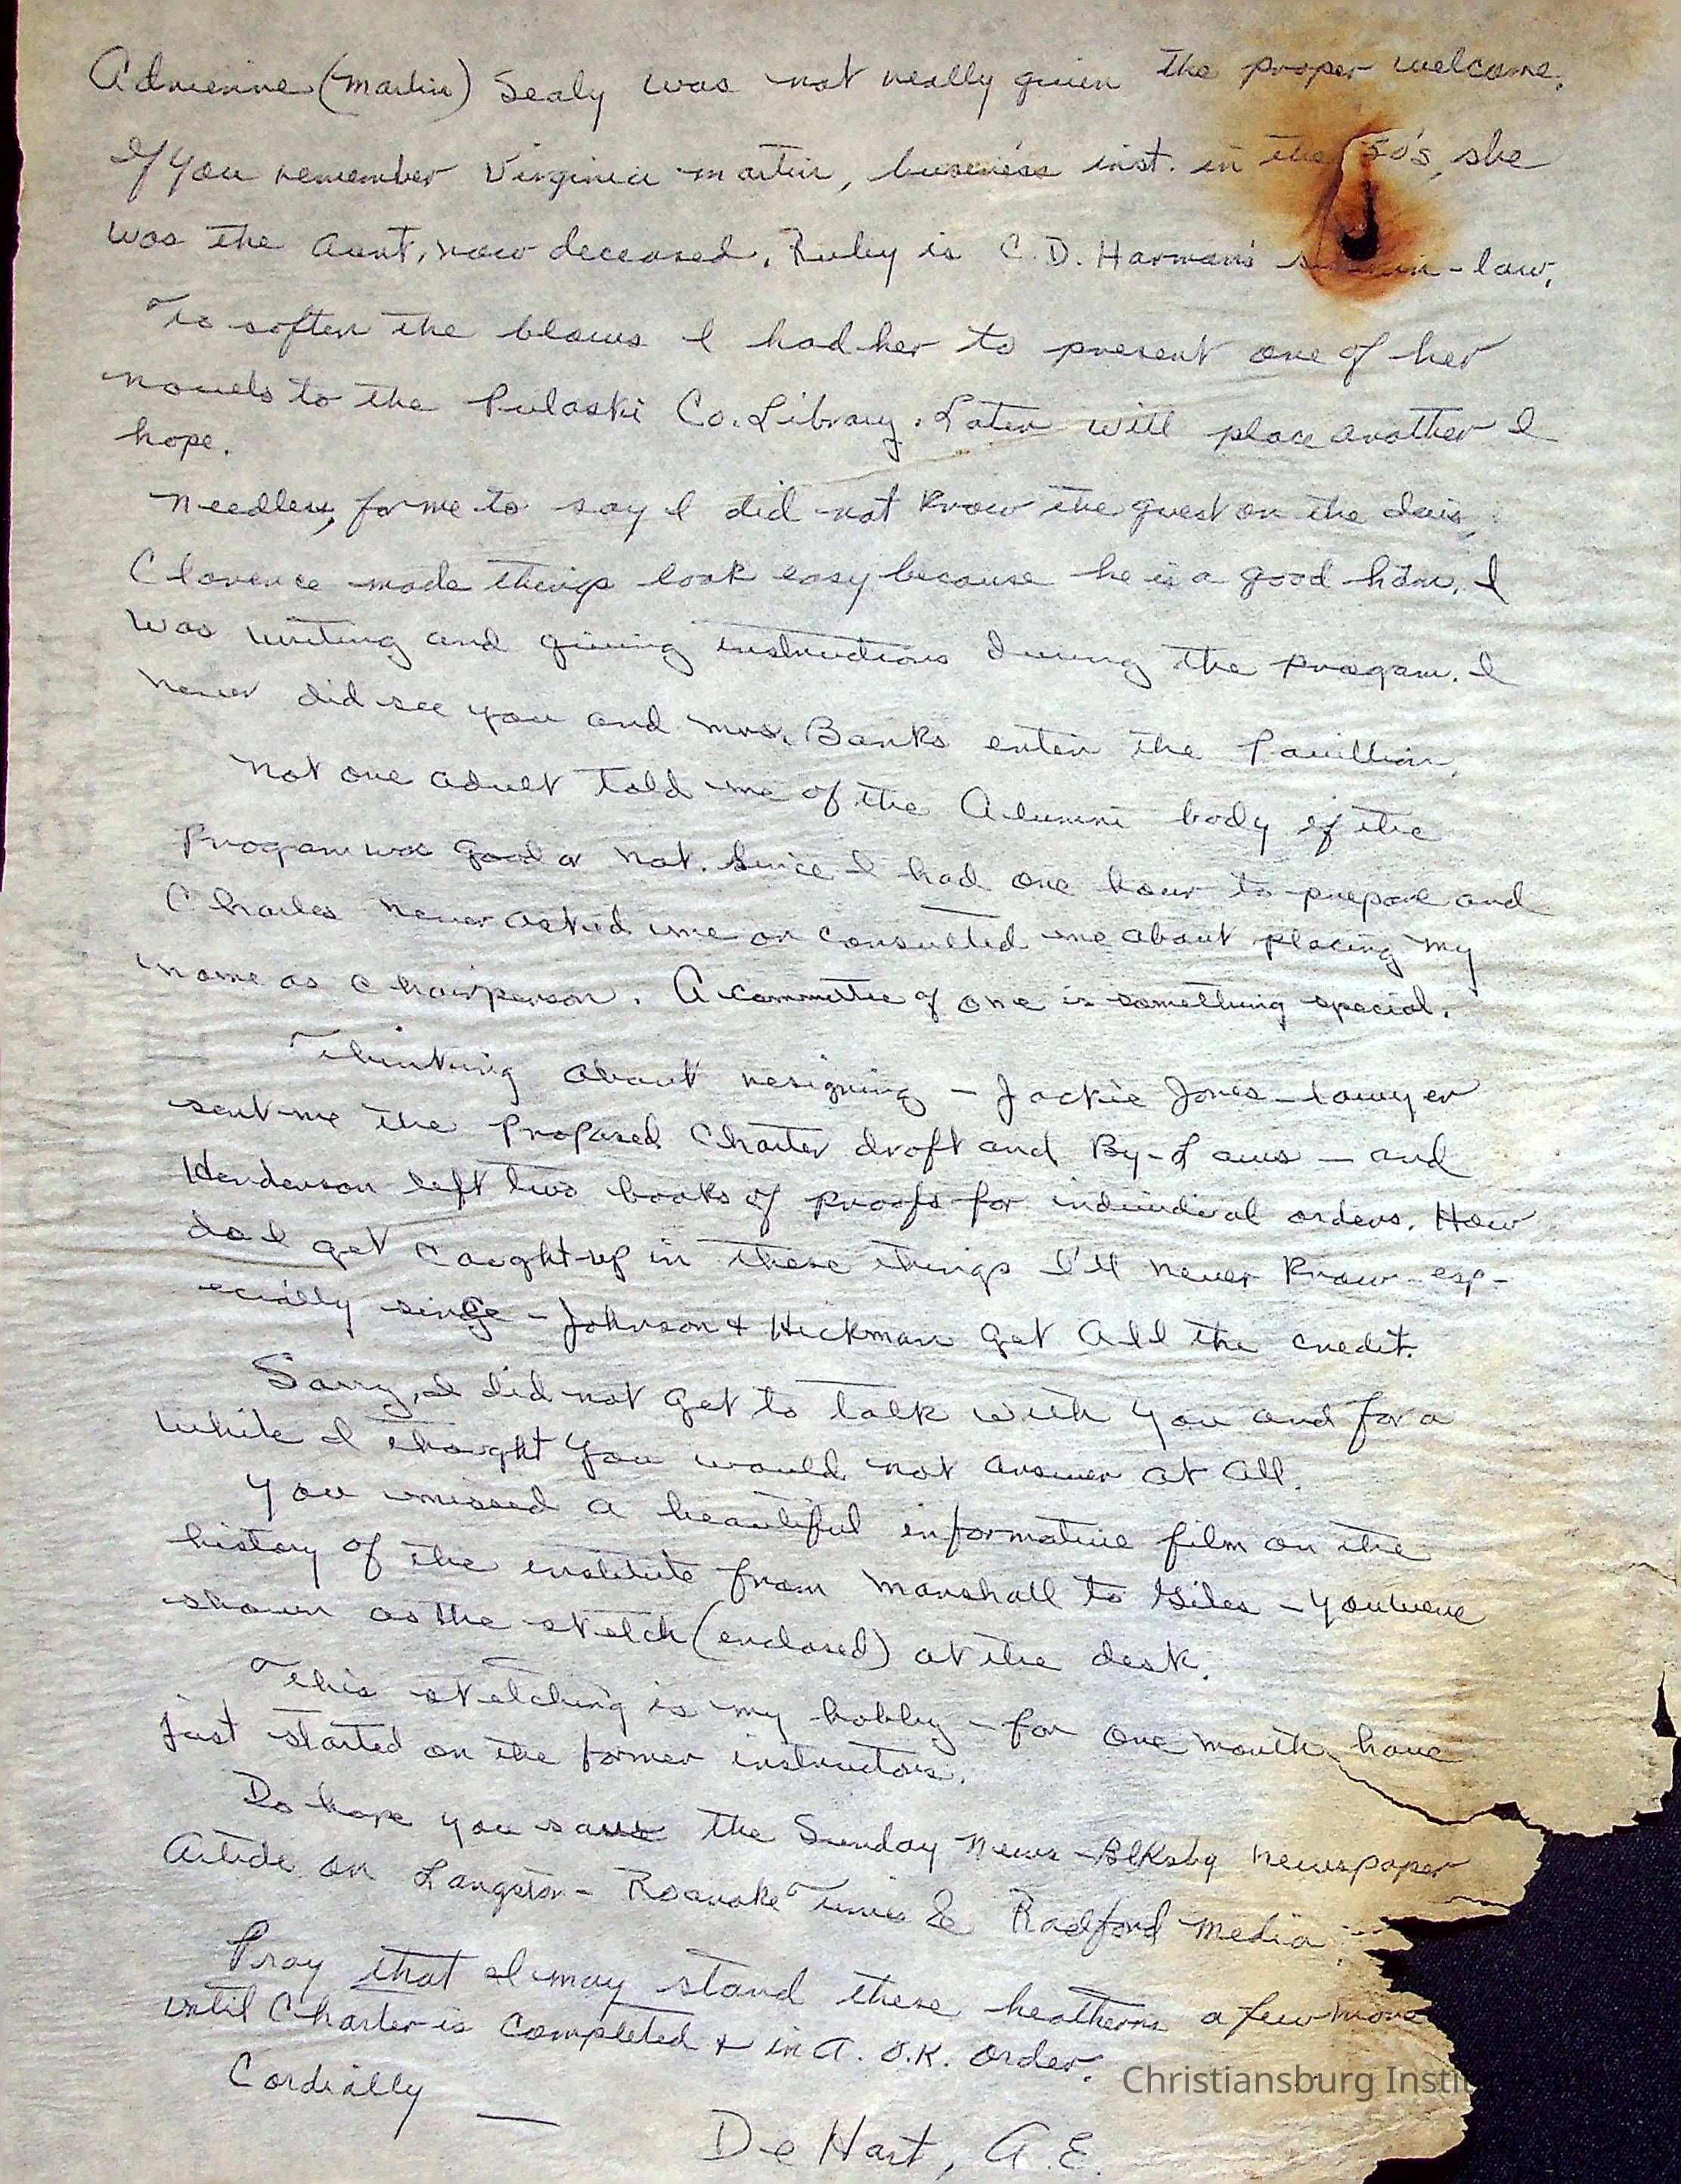 Adrienne (Martin) Sealy was not really given the proper welcome.
If you remember Virginia Martin, business inst. in the 50's, she
was the Aunt, now deceased. Ruby is C. D. Harman's in-law.
To soften the blows I had her to present one of her
novels to the Pulaski Co. Library. Later will place another I
hope.
Needless, for me to say I did not know the guest on the dais,
Clarence made things look easy because he is a good ham. I
was writing and giving instructions during the progam. I
never did see you and Mrs. Banks enter the Pavillion.
Not one adult told me of the Alumni body if the
Progam was good or not. Since I had one hour to prepare and
Charles never asked me or consulted me about placing my
name as chairperson. A committee of one is something special.
Thinking about resigning - Jackie Jones - lawyer
sent me the Proposed Charter draft and By-Laws - and
Henderson left two books of proofs for individual orders. How
do I get caught-up in these things I'll never know - esp-
ecially since - Johnson & Hickman get All the credit.
Sorry, I did not get to talk with you and for a
while I thought you would not answer at all.
You missed a beautiful informative film on the
history of the institute from Marshall to Giles - you were
shown as the sketch (enclosed) at the desk.
This sketching is my hobby - for one month have
just started on the former instructors.
Do hope you saw the Sunday News - Blksbg newspaper
Article on Langston - Roanoke Times & Radford media
Pray that I may stand these heathens a few more
until Charter is completed & in A. O.K. order.
Cordially —
De Hart, A. E.
Christiansburg